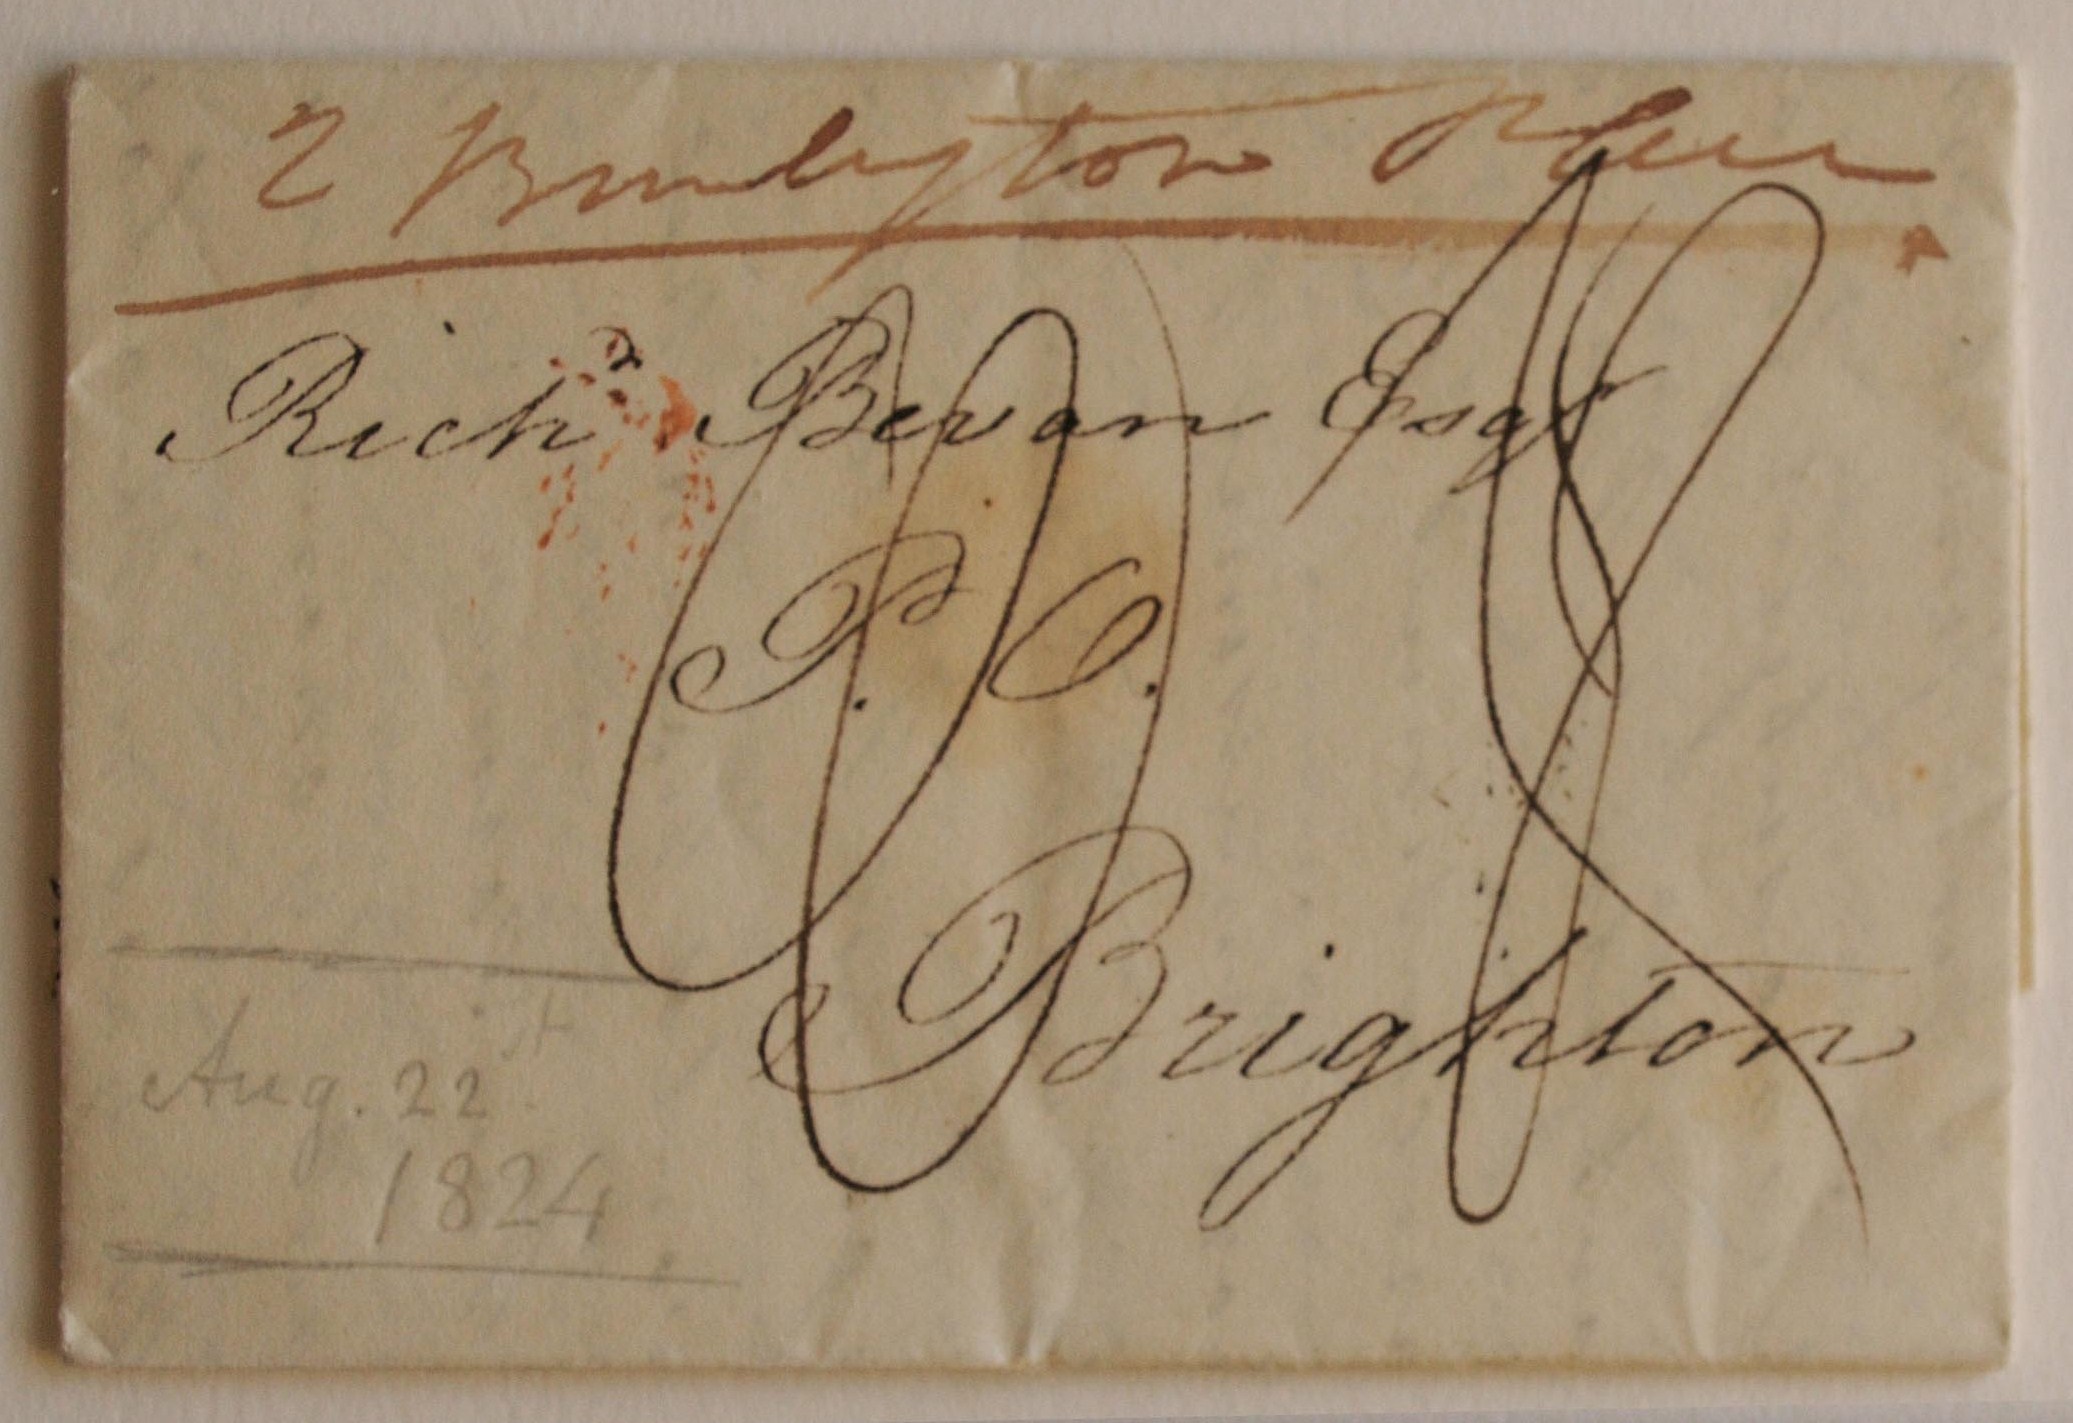 2 Burlington Place
Richd Bevan Esqr
P. O.
Brighton
Aug. 22
1824